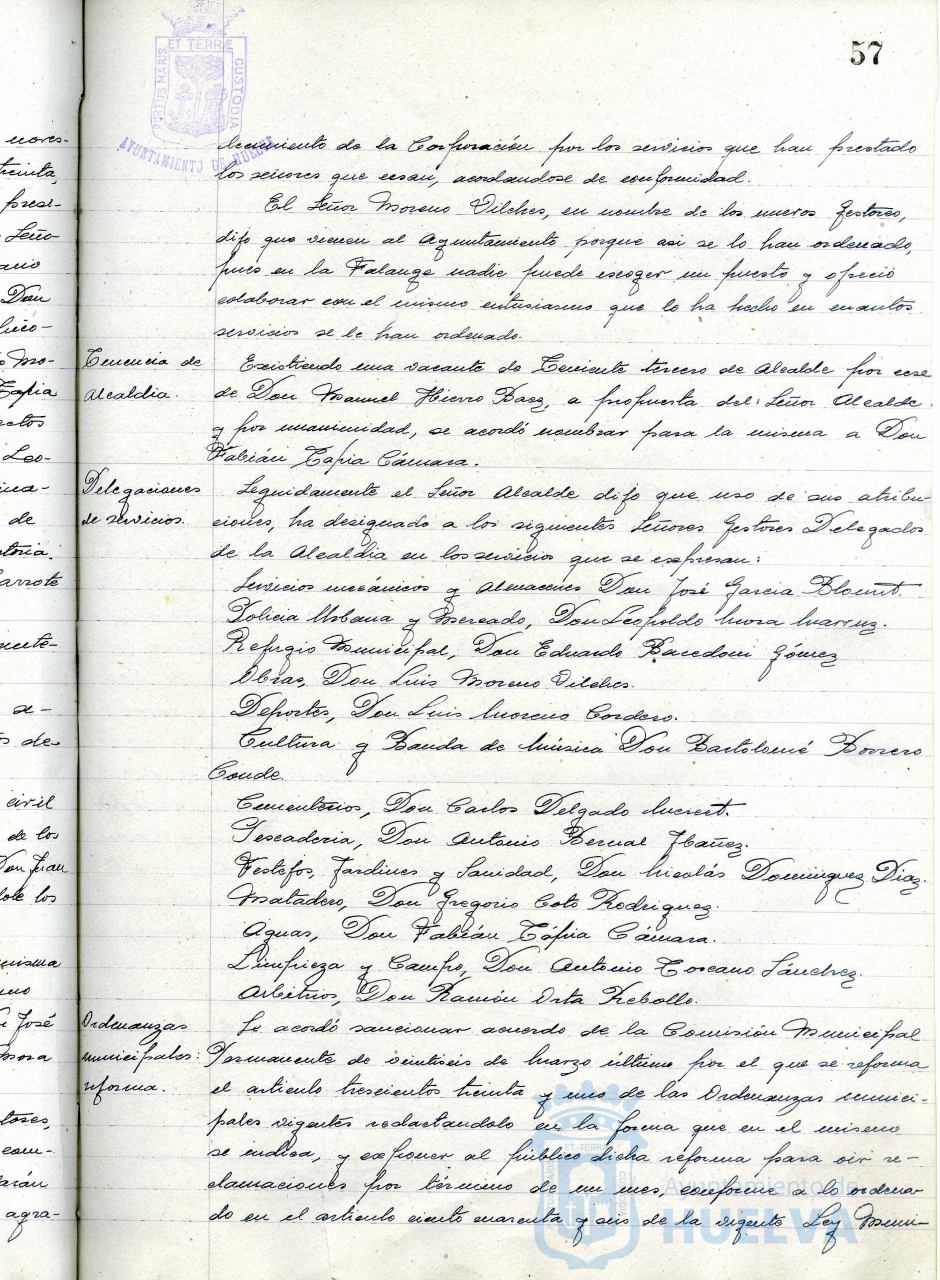 57
PORTUS MARIS ET TERRE CUSTODIA
AYUNTAMIENTO DE HUELVA
de la Corporación por los servicios que han prestado
los señores que cesan, acordandose de conformidad.
El Señor Moreno Vilches, en nombre de los nuevos Gestores,
dijo que vienen al Ayuntamiento, porque asi se lo han ordenado,
pues en la Falange nadie puede escoger un puesto y ofreció
colaborar con el mismo entusiasmo que lo ha hecho en cuantos
servicios se le han ordenado.
Tenencia de
Alcaldia.
Existiendo una vacante de Teniente tercero de Alcalde por cese
de Don Manuel Hierro Baez, a propuesta del Señor Alcalde
y por unanimidad, se acordó nombrar para la misma a Don
Fabián Tapia Cámara.
Delegaciones
de servicios.
Seguidamente el Señor Alcalde dijo que uso de sus atribu-
ciones, ha designado a los siguientes Señores Gestores Delegados
de la Alcaldia en los servicios que se expresan:
Servicios mecánicos y Almacenes Don José Garcia
Policia Urbana y Mercado, Don Leopoldo
Refugio Municipal, Don Eduardo Gómez
Obras, Don Luis Moreno Vilches.
Deportes, Don Luis Moreno Cordero.
Cultura y Banda de Música Don Bartolomé Borrero
Conde.
Cementerios, Don Carlos Delgado
Pescaderia, Don Antonio Bernal Ibañez.
Festejos, Jardines y Sanidad, Don Nicolás Dominguez Diaz.
Matadero, Don Gregorio Coto Rodriguez.
Aguas, Don Fabián Tápia Cámara.
Limpieza y Campo, Don Antonio Toscano Sánchez.
Arbitrios, Don Ramón Orta Rebollo.
Ordenanzas
municipales:
reforma.
Se acordó sancionar acuerdo de la Comisión Municipal
Permanente de veintiseis de Marzo último por el que se reforma
el articulo trescientos treinta y uno de las Ordenanzas munici-
pales vigentes redactandolo en la forma que en el mismo
se indica, y exponer al público dicha reforma para oir re-
clamaciones por término de un mes, conforme a lo ordena-
do en el articulo ciento cuarenta y seis de la vigente Ley Muni-
Ayuntamiento de
HUELVA